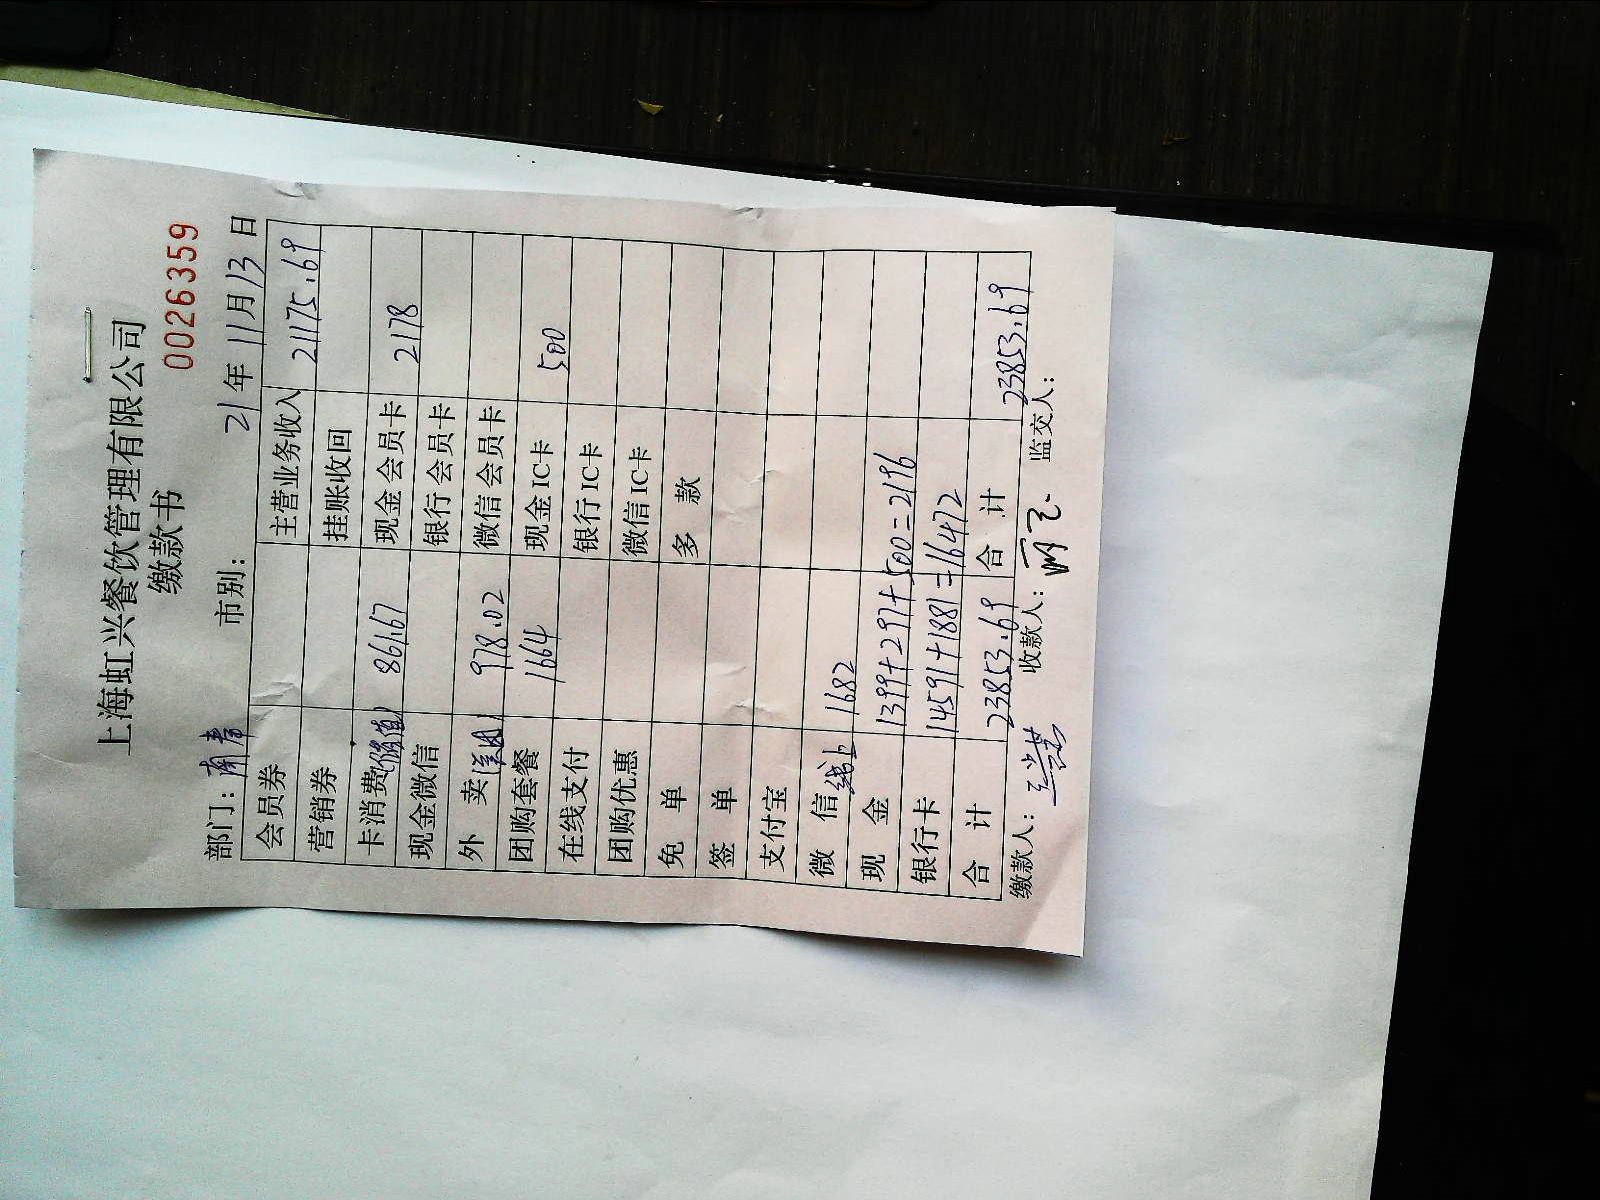 上海虹兴餐饮管理有限公司
缴款书
0026359
部门: 南 市别: 21年11月13日
会员券 主营业务收入 21175.69
营销券 挂账收回
卡消费(储值) 861.67 现金会员卡 2178
现金微信 银行会员卡
外 卖 978.02 微信会员卡
团购套餐 1664 现金IC卡 500
在线支付 银行IC卡
团购优惠 微信IC卡
免 单 多 款
签 单
支付宝
微 信 线上 1682
现 金 1399+297+500=2196
银行卡 14591+1881=16472
合 计 23853.69 合 计 23853.69
缴款人: 收款人: 监交人: